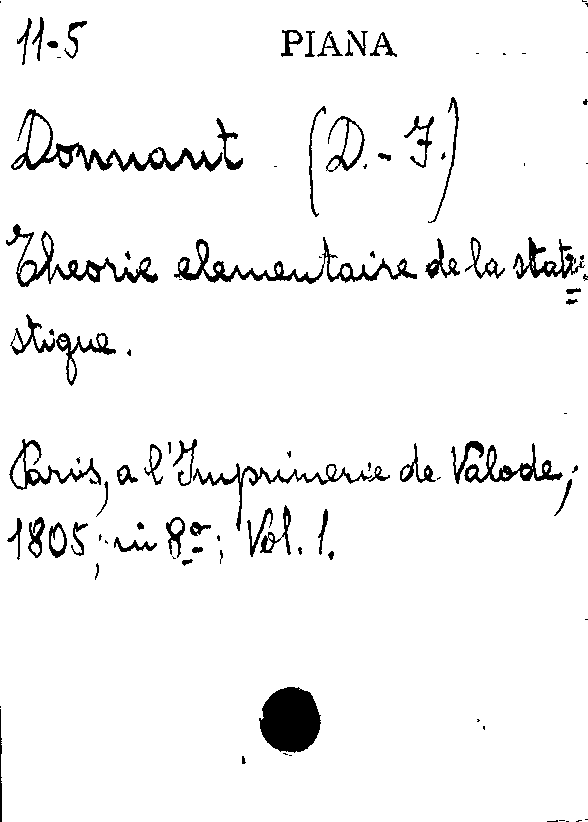 11-5 PIANA
Donnant (D.-F.)
Theorie elementaire de la stati=
stique.
Paris, a l'Imprimerie de Valade;
1805; in 8º; Vol. 1.